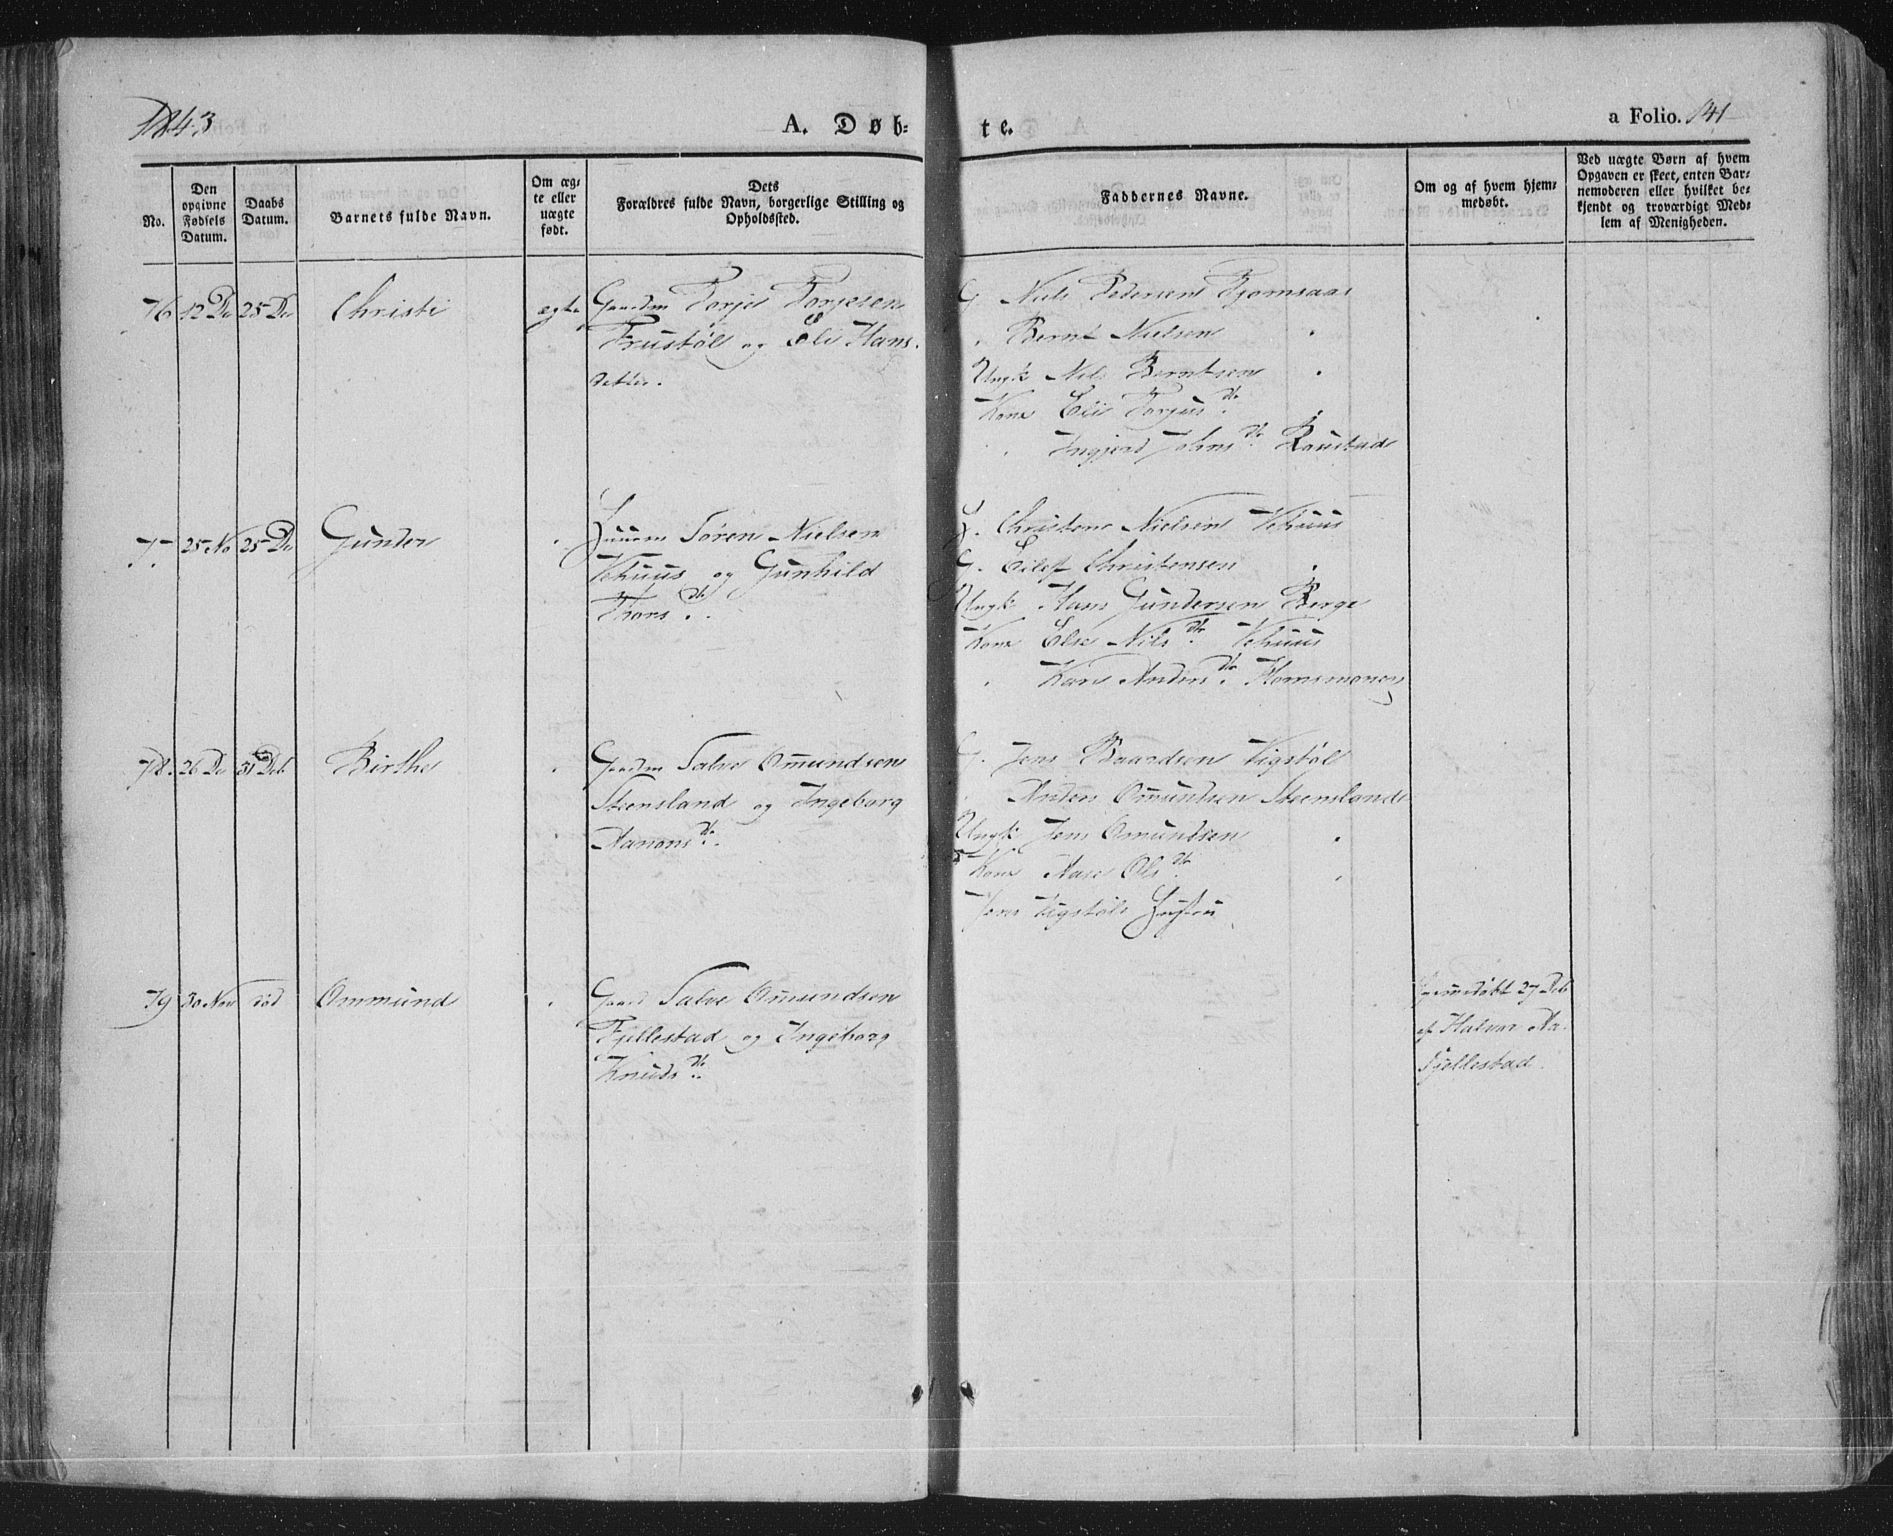 1843
A. Døb-
te.
a Folio. 141
No.
Den opgivne Fødsels Datum.
Daabs Datum.
Barnets fulde Navn.
Om æg-
te eller
uægte
født.
Dets
Forældres fulde Navn, borgerlige Stilling og
Opholdssted.
Faddernes Navne.
Om og af hvem hjem-
medøbt.
Ved uægte Børn af hvem
Opgaven er skeet, enten Bar-
nemoderen eller hvilket be-
kjendt og troværdigt Med-
lem af Menigheden.
76 12 De 25 De Christi ægte Gaardm Torje Torjesen
Frustøl og Eli Hans
datter.
G Niels Pedersen Fjomsaas
Bernt Nielsen
Ungk Nils Berntsen
Kone Eli Torjus Dtr
Ingjerd Johns Dtr Raustad
77 25 No 25 De Gunder Huusm Søren Nielsen
Vehuus og Gunhild
Thors Dtr
H. Christen Nielsen Vehuus
G. Eilef Christensen
Ungk Hans Gundersen Berge
Kone Else Nils Dtr Vehuus
Kari Anders Dtr Homsmonen
78. 26 De 31 Deb Birthe Gaardm Salve Omundsen
Steensland og Ingeborg
Aanons Dtr
G. Jens Baardsen Vigstøl
Anders Omundsen Steensland
Ungk Jens Omundsen
Kone Aase Ols Dtr
Jens Vigstøls Hustru
79 30 Nov død Ommund Gaard Salve Omundsen
Fjellestad og Ingeborg
Knuds Dtr
hjemmedøbt 27 Deb
af Halvor Aa.
Fjellestad.